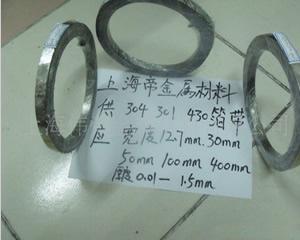 上海帝金属材料
供 304 301 430箔带
应 宽度12.7mm.30mm
50mm 100mm 400mm
厚度0.01－1.5mm